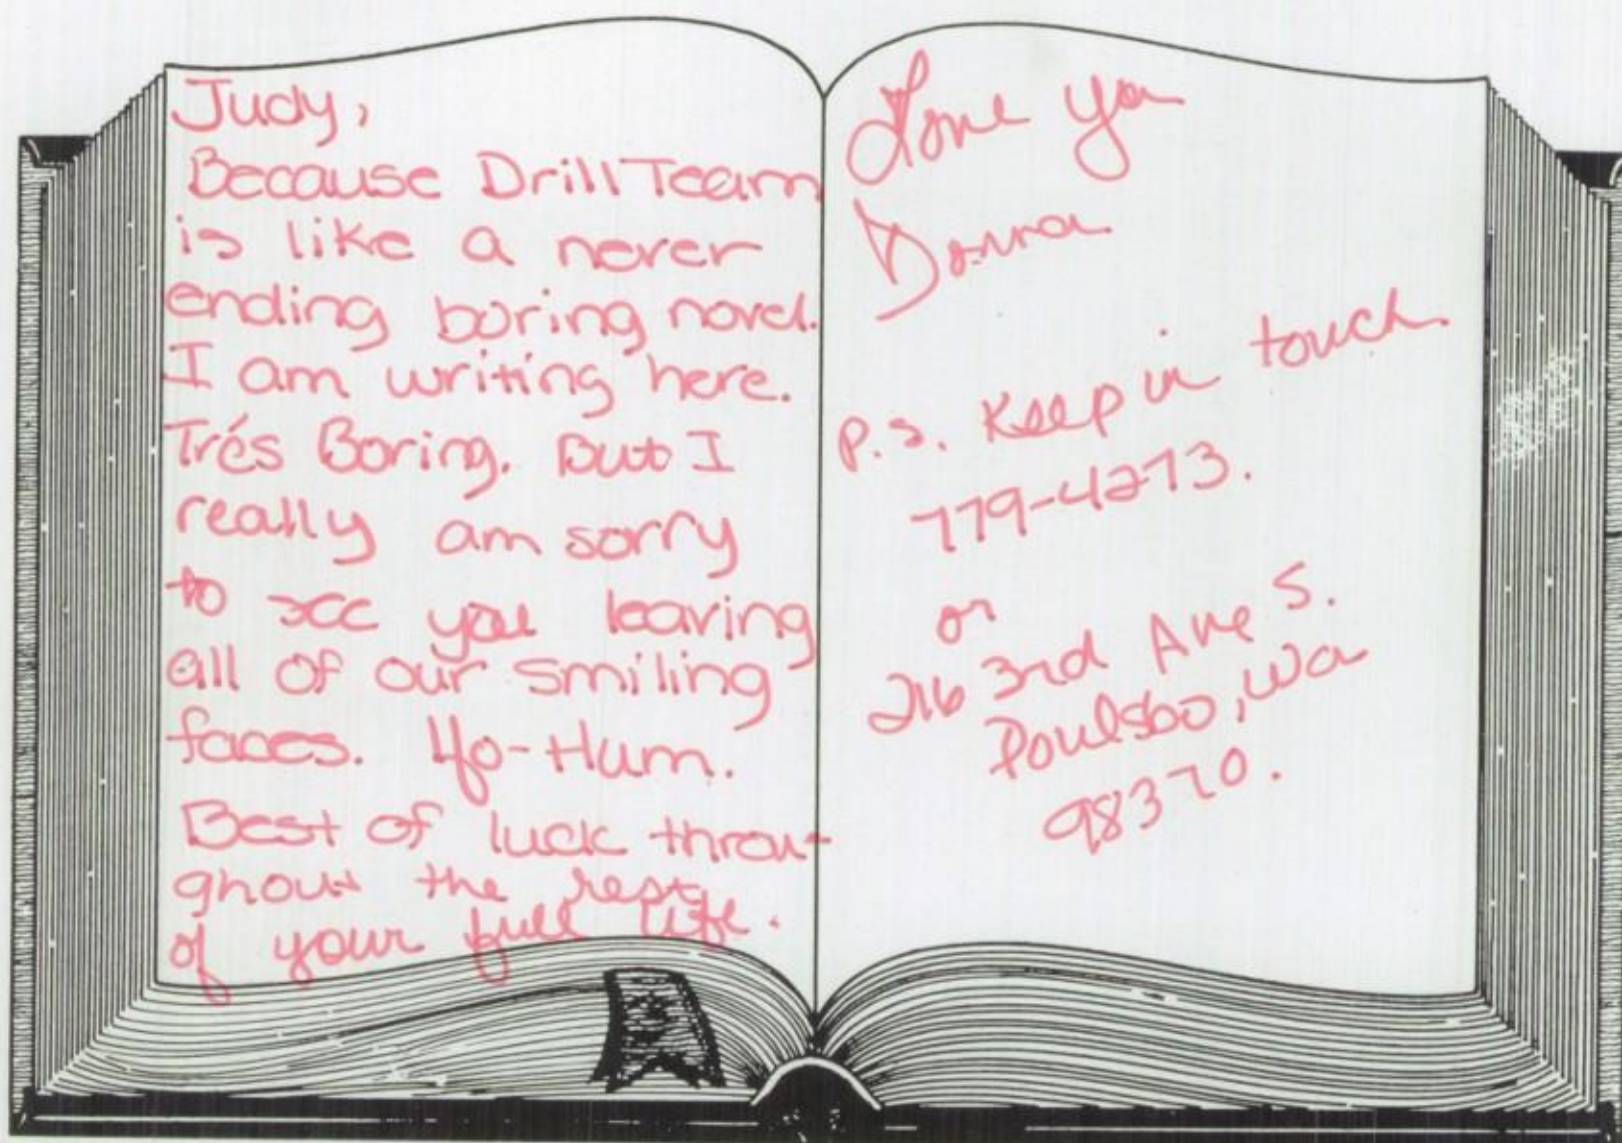 Judy,
Because Drill Team
is like a never
ending boring novel.
I am writing here.
Trés Boring. But I
really am sorry
to see you leaving
all of our smiling
faces. Ho-Hum.
Best of luck throu-
ghout the rest
of your full life.
Love ya
Donna
P.S. Keep in touch
779-4273.
or
216 3rd Ave S.
Poulsbo, Wa
98370.